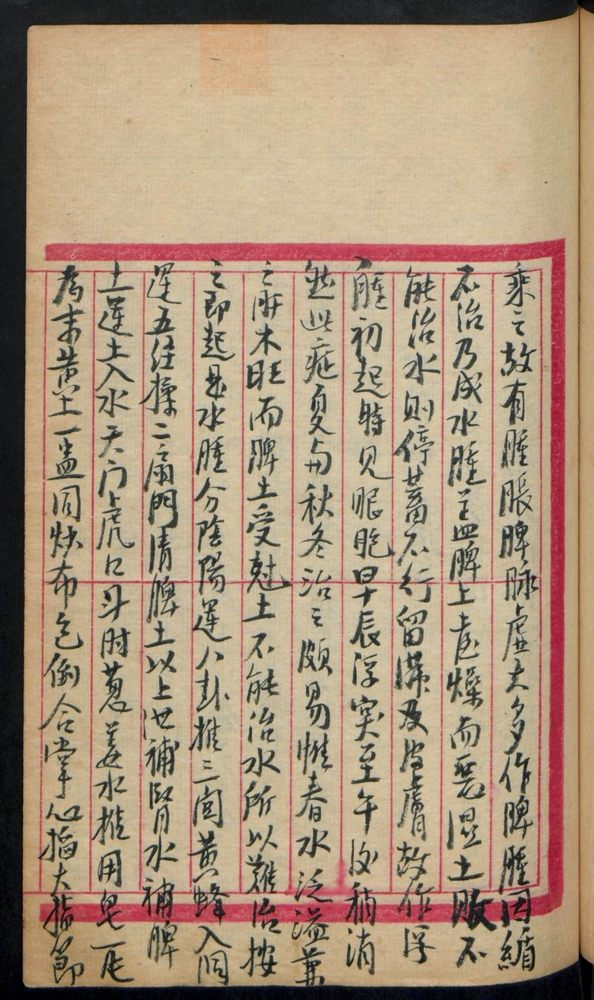 乘之故有腫脹脾脉虛大多作脾腫因緟
不治乃成水腫盖脾土喜燥而惡濕土敗不
能治水則停蓄不行留滯及皮膚故作浮
腫初起時見眼胞早辰浮突至午後稍消
然此症夏与秋冬治之頗易惟春水泛溢兼
之肝木旺而脾土受尅土不能治水所以難治按
之即起是水腫分陰陽運八卦推三関黄蜂入洞
運五経揉二扇門清脾土以上泄補腎水補脾
土運土入水天门虎口斗肘葱姜水推用皂一
為末黄土一盏同炒布包倒合掌心掐大指節